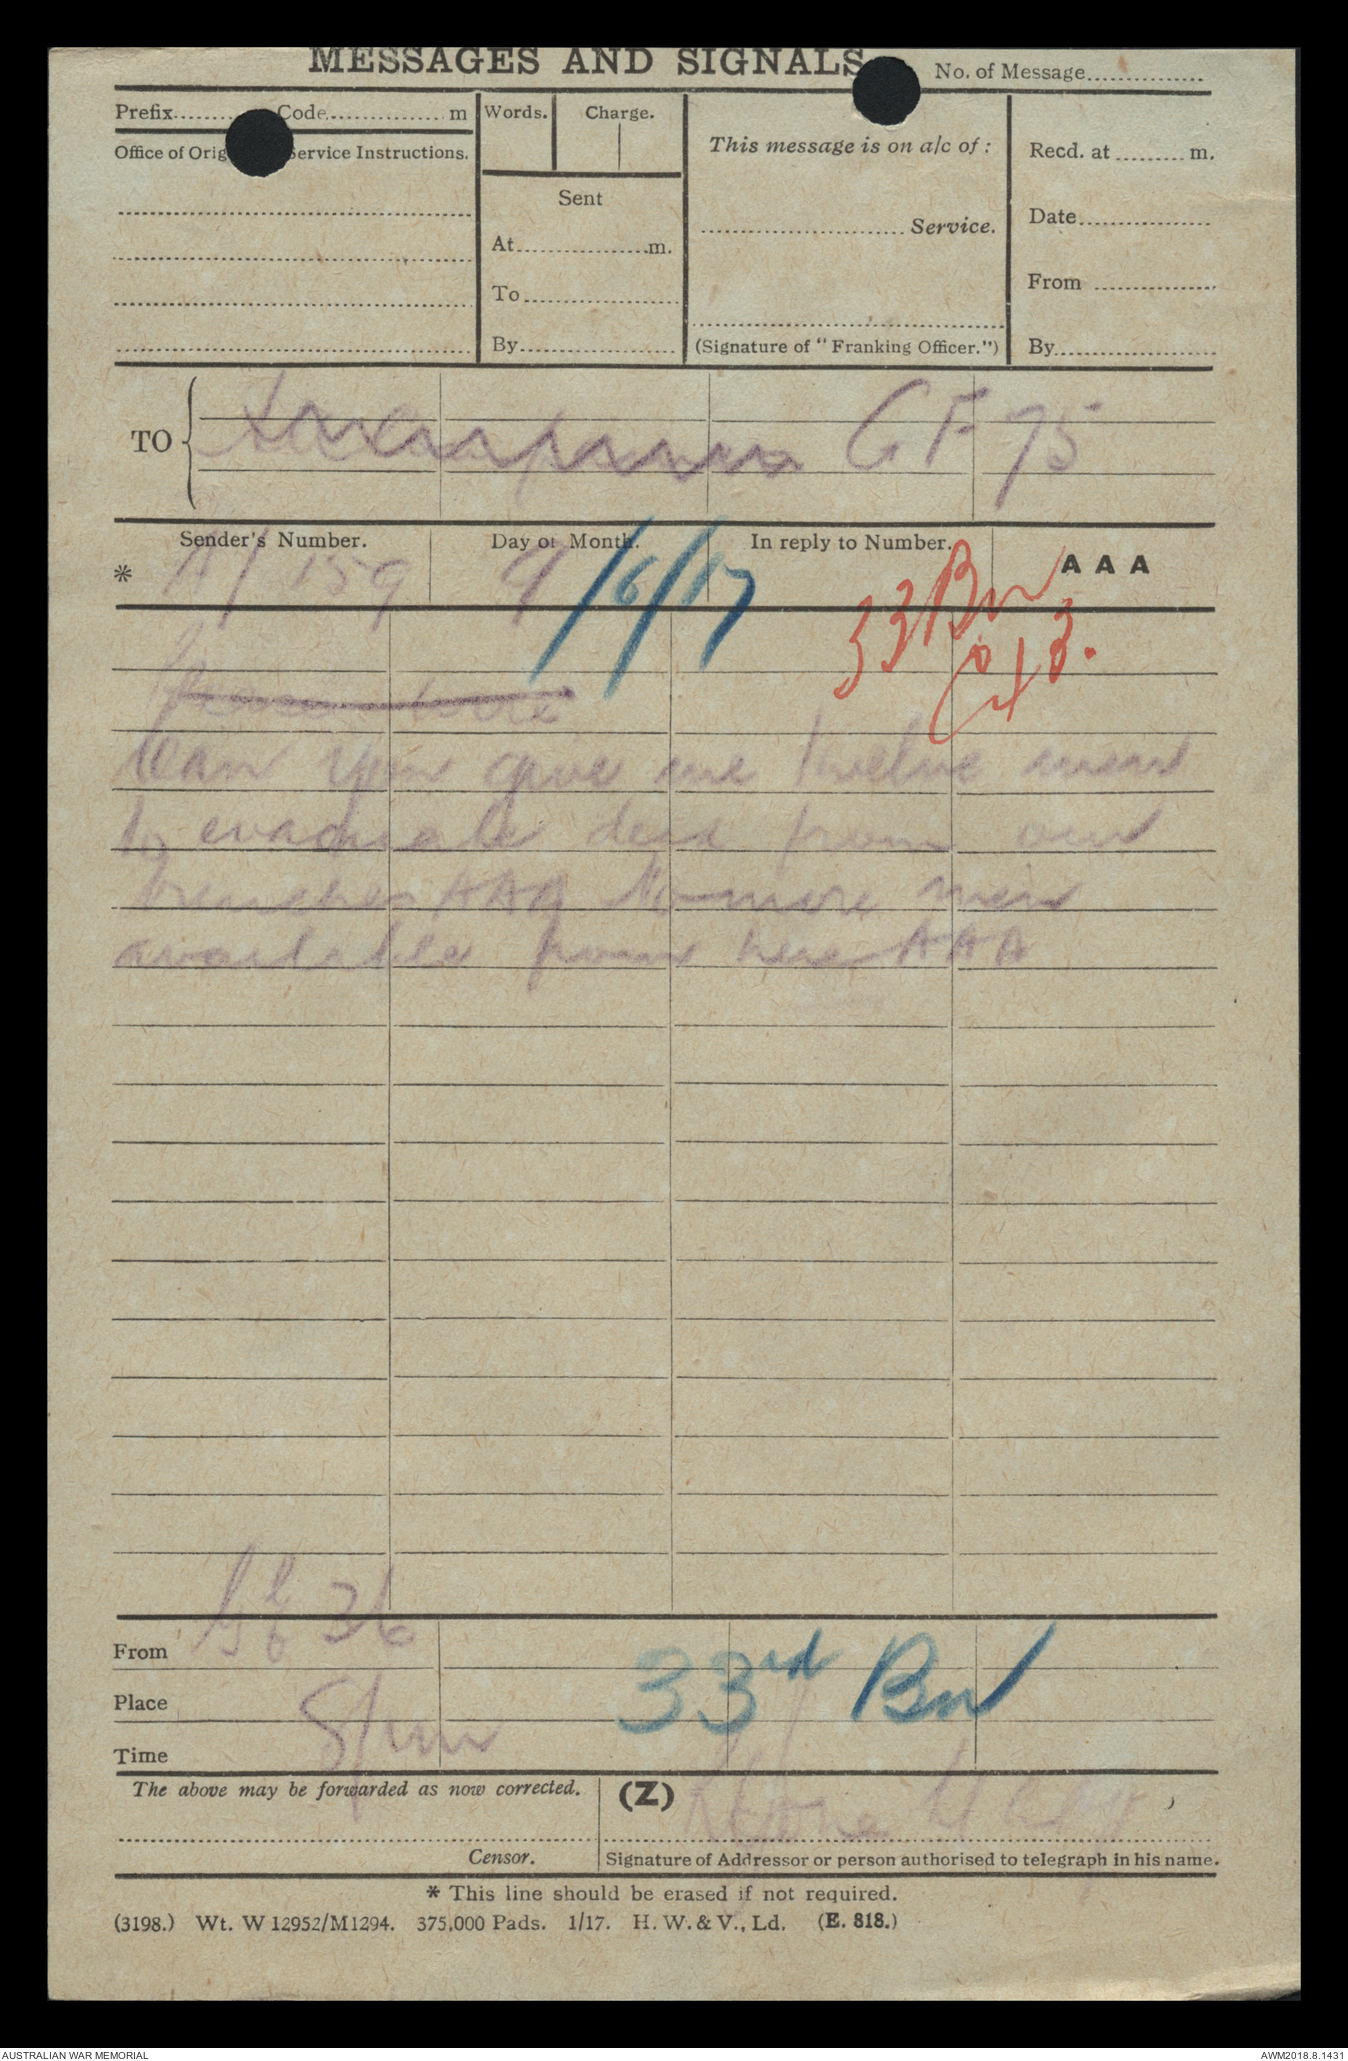 MESSAGES AND SIGNALS.
No. of Message...............
Prefix.......... Code................ m
Words. Charge.
This message is on a/c of :
Recd. at ......... m.
Office of Orig Service Instructions.
Sent
........................... Service.
Date..................
At..................m.
To.....................
From ................
By.....................
(Signature of "Franking Officer.")
By.....................
TO
GF 75
Sender's Number.
Day of Month.
In reply to Number.
AAA
*
A/159
9/6/17
33 Bn
Can you give me twelve men
to evacuate dead from our
trenches AAA No more men
available from here AAA
36
From
33rd Bn
Place
Time
The above may be forwarded as now corrected.
(Z)
Censor.
Signature of Addressor or person authorised to telegraph in his name.
* This line should be erased if not required.
(3198.) Wt. W 12952/M1294. 375,000 Pads. 1/17. H. W. & V., Ld. (E. 818.)
AUSTRALIAN WAR MEMORIAL
AWM2018.8.1431